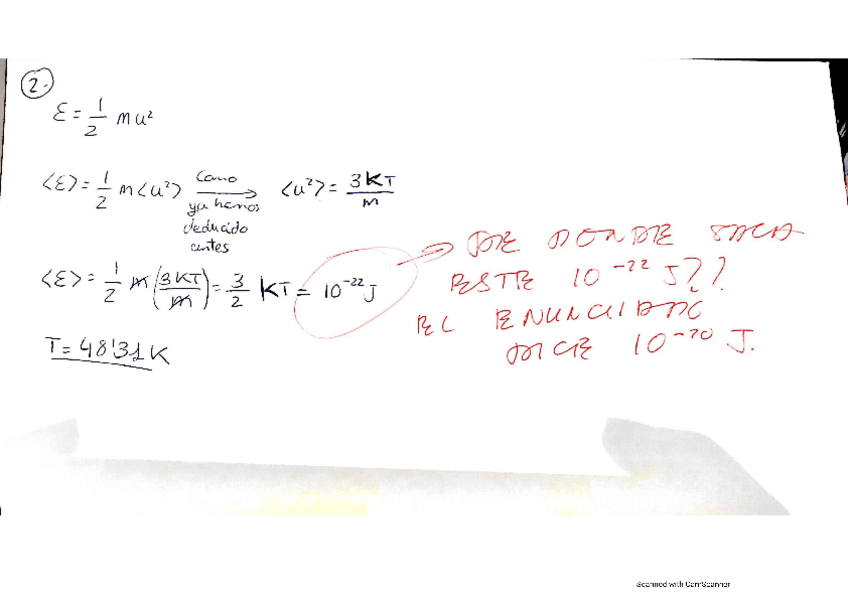 2.-
ε = 1/2 mu²
<ε> = 1/2 m<u²> Como ya hemos deducido antes → <u²> = 3KT/m
<ε> = 1/2 m (3KT/m) = 3/2 KT = 10⁻²² J
T = 48'31 K
→ DE DONDE SACA
ESTE 10⁻²² J??
EL ENUNCIADO
DICE 10⁻²⁰ J.
Scanned with CamScanner